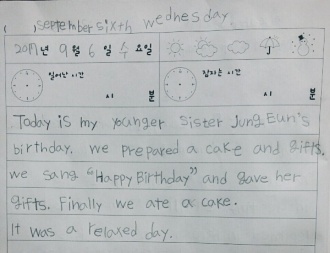 ( , september sixth wednesday.
2017년 9월 6일 수요일
일어난 시간 잠자는 시간
시 분 시 분
Today is my younger sister JungEun's
birthday. we prepared a cake and gifts.
we sang "Happy Birthday" and gave her
gifts. Finally we ate a cake.
It was a relaxed day.